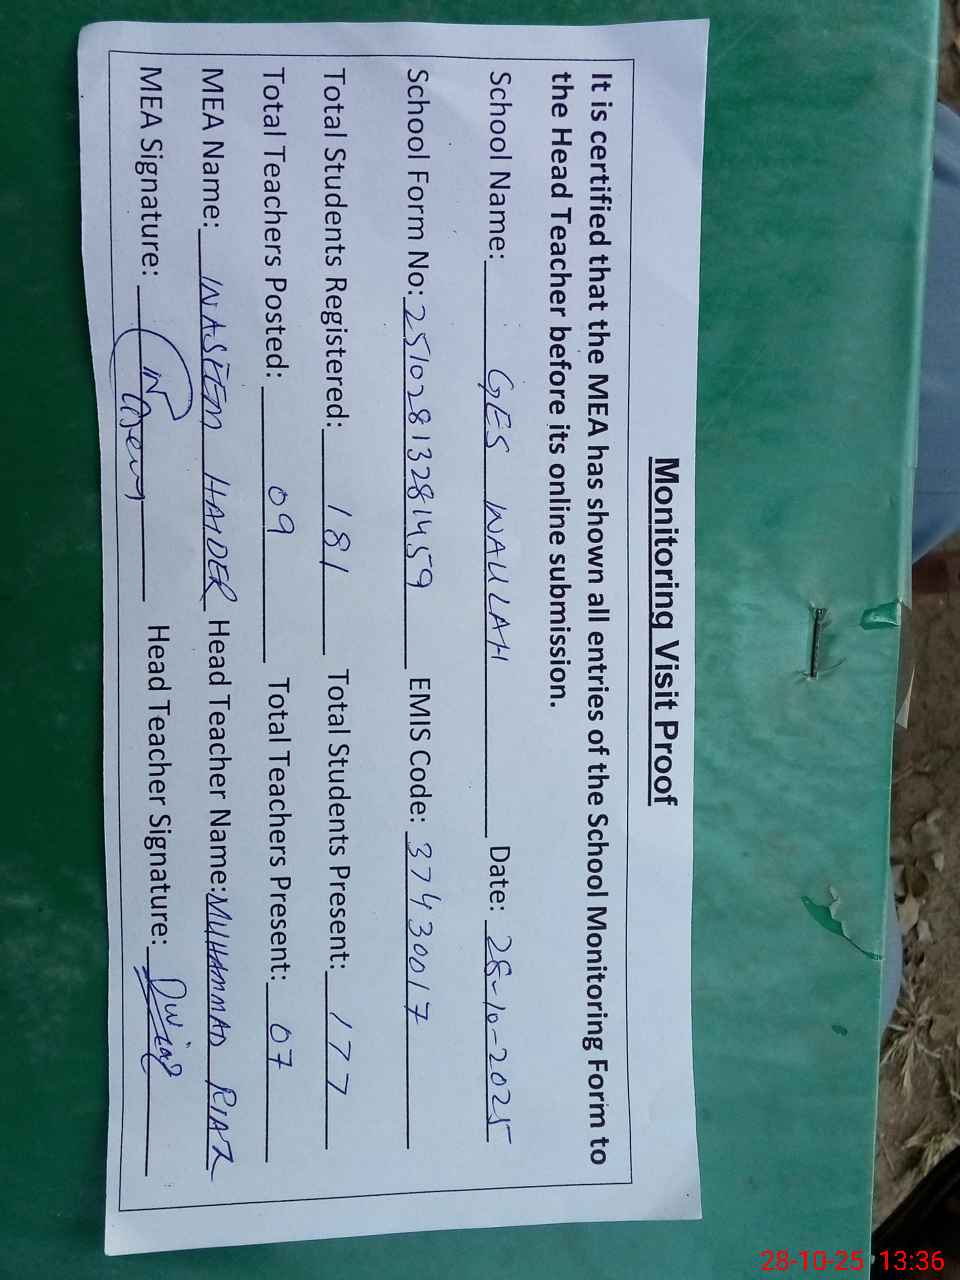 Monitoring Visit Proof
It is certified that the MEA has shown all entries of the School Monitoring Form to
the Head Teacher before its online submission.
School Name: GES WAULAH Date: 28-10-2025
School Form No: 25102813281459 EMIS Code: 37430017
Total Students Registered: 181 Total Students Present: 177
Total Teachers Posted: 09 Total Teachers Present: 07
MEA Name: WASEEM HAIDER Head Teacher Name: MUHAMMAD RIAZ
MEA Signature: Waseem Head Teacher Signature:
28-10-25 13:36